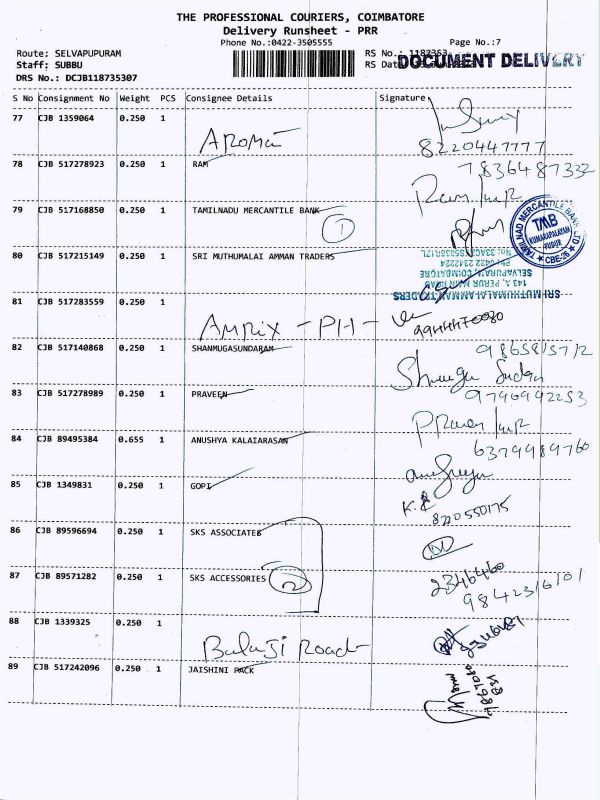 THE PROFESSIONAL COURIERS, COIMBATORE
Delivery Runsheet - PRR
Phone No.:0422-3505555
Page No.:7
Route: SELVAPUPURAM
RS No.: 1187353
Staff: SUBBU
RS Dat
DOCUMENT DELIVERY
DRS No.: DCJB118735307
S No Consignment No Weight PCS Consignee Details Signature
77 CJB 1359064 0.250 1
AROMA
8220447777
78 CJB 517278923 0.250 1 RAM
7836487332
79 CJB 517168850 0.250 1 TAMILNADU MERCANTILE BANK
1
TAMILNAD MERCANTILE BANK LTD
TMB
KUMARAPALAYAM
CBE-26
80 CJB 517215149 0.250 1 SRI MUTHUMALAI AMMAN TRADERS
SRI MUTHUMALAI AMMAN TRADERS
143 A, PERUR MAIN ROAD
SELVAPURAM, COIMBATORE
PH: 0422 2342224
81 CJB 517283559 0.250 1
AMRIX - PH -
9944470080
82 CJB 517140868 0.250 1 SHANMUGASUNDARAM
9865815712
83 CJB 517278989 0.250 1 PRAVEEN
9790992253
84 CJB 89495384 0.655 1 ANUSHYA KALAIARASAN
6379989760
85 CJB 1349831 0.250 1 GOPI
8220550175
86 CJB 89596694 0.250 1 SKS ASSOCIATES
87 CJB 89571282 0.250 1 SKS ACCESSORIES
2
2346460
9842316101
88 CJB 1339325 0.250 1
Balaji Road
89 CJB 517242096 0.250 1 JAISHINI PACK